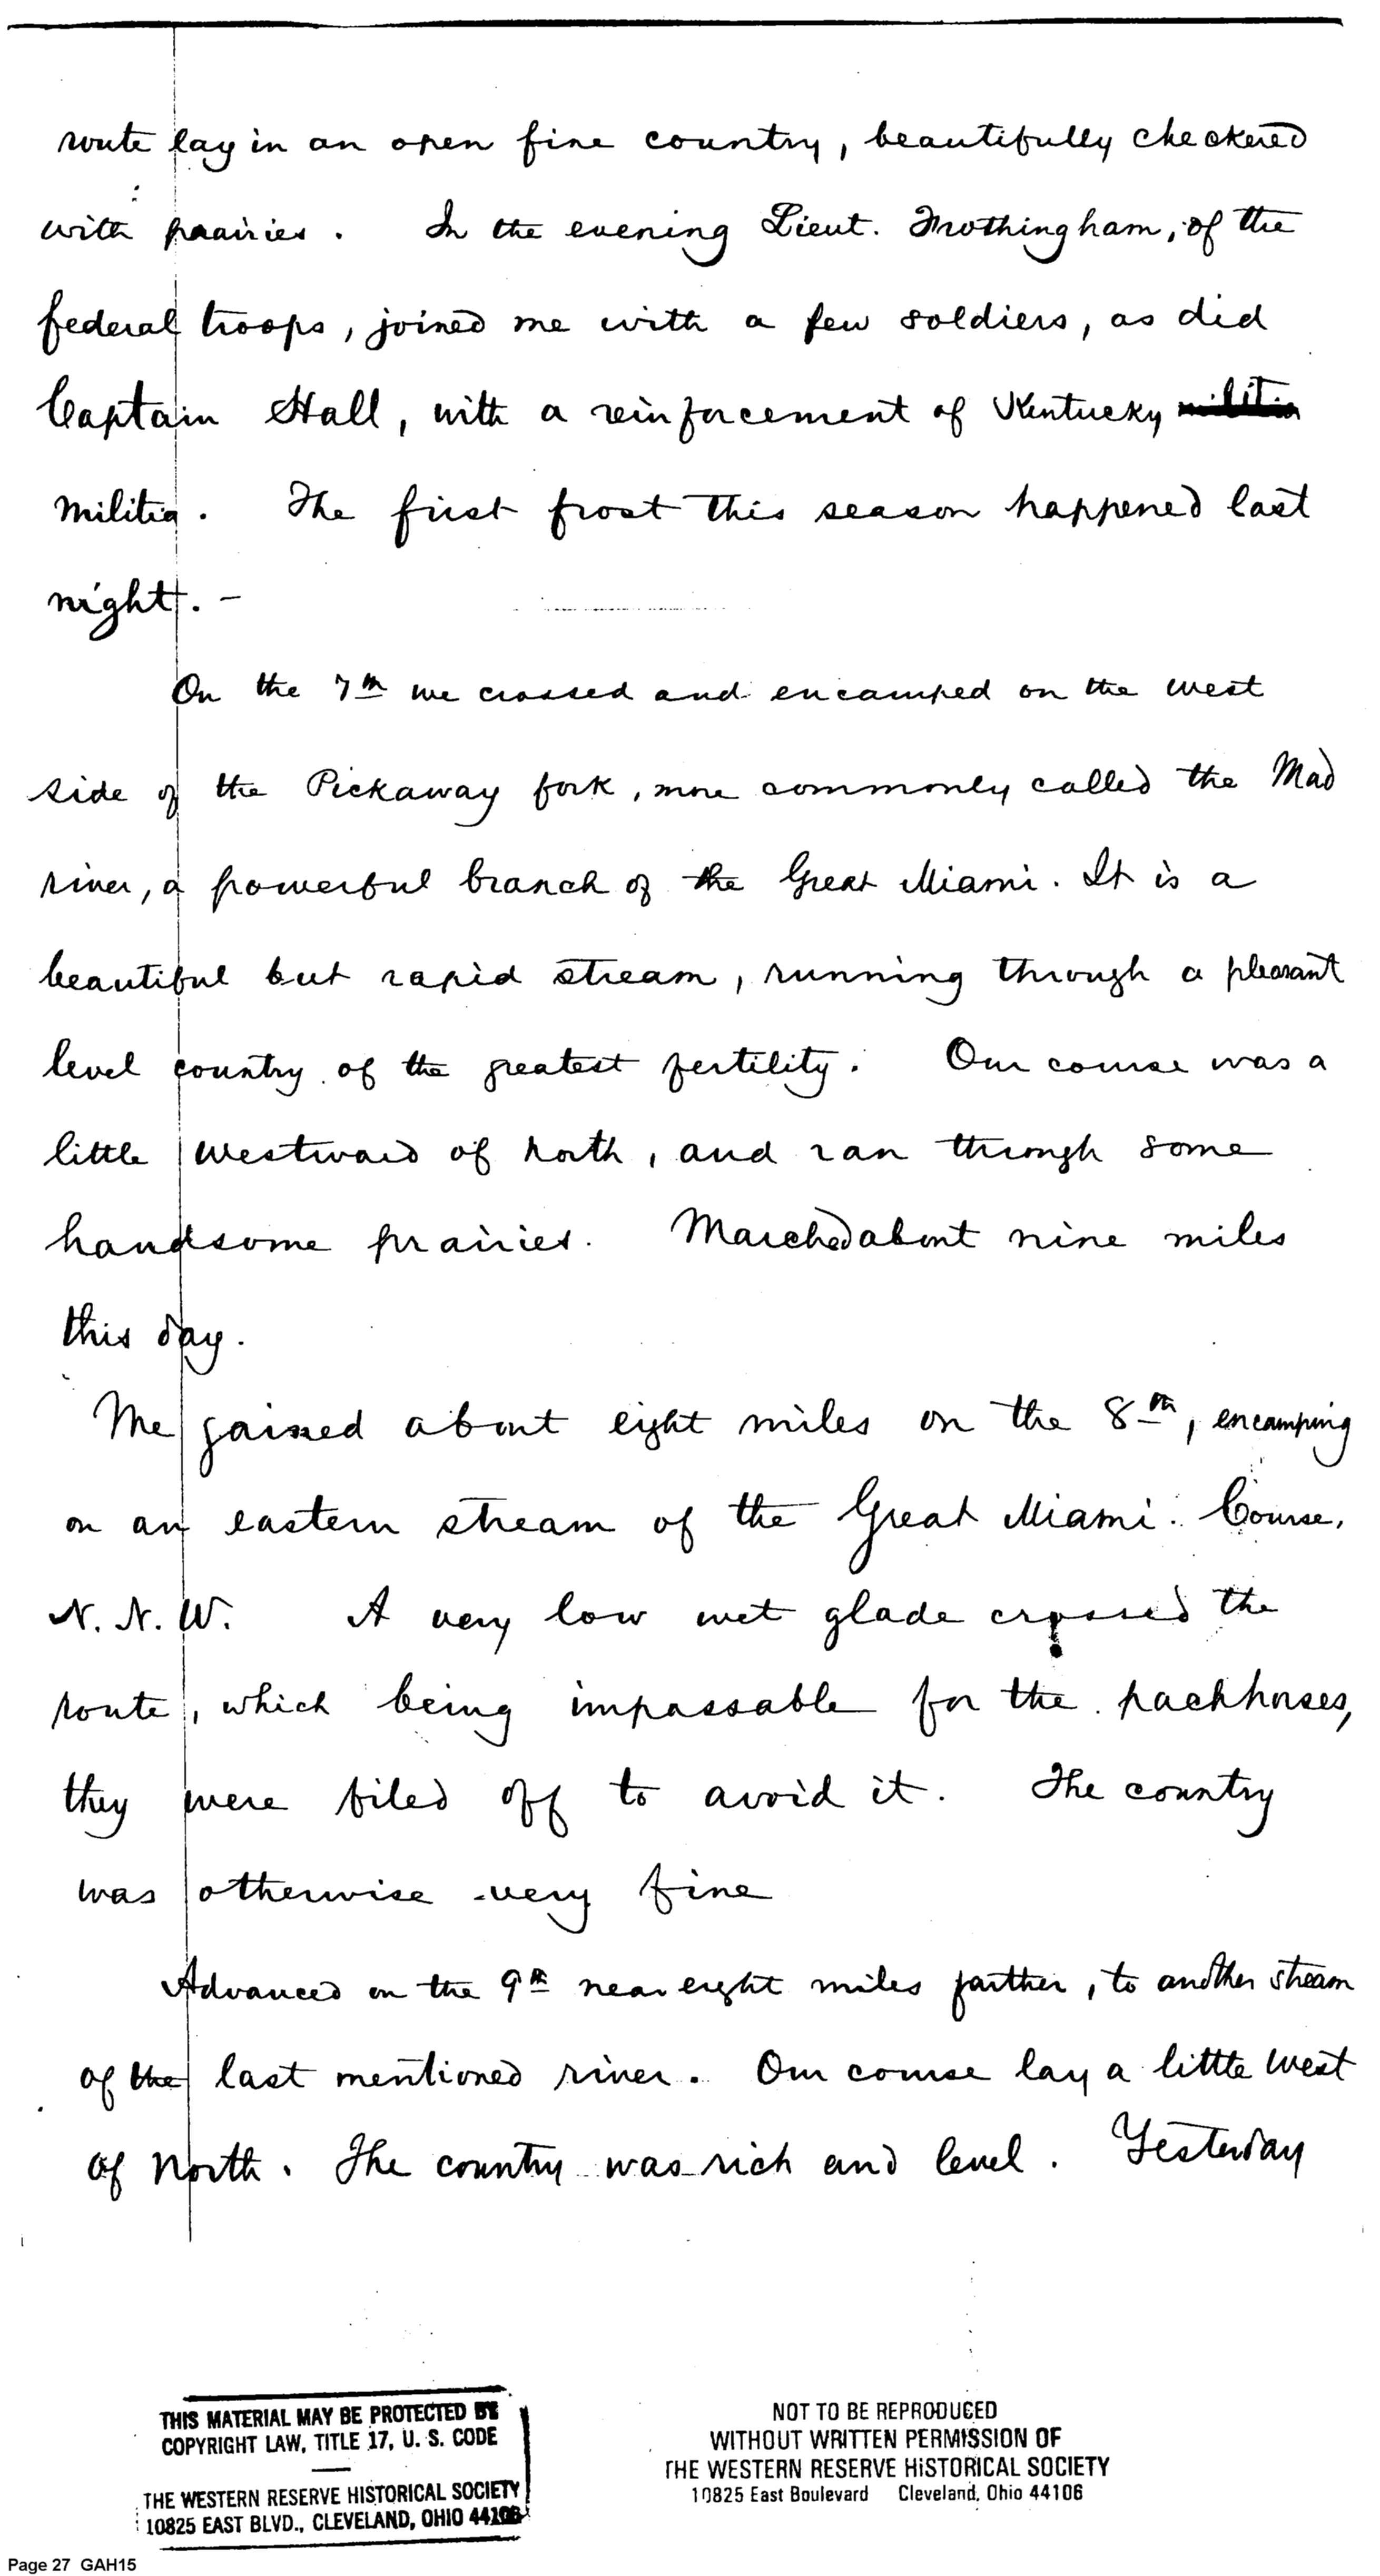 route lay in an open fine country, beautifully checkered
with prairies. In the evening Lieut. Frothingham, of the
federal troops, joined me with a few soldiers, as did
Captain Hall, with a reinforcement of Kentucky militia
militia. The first frost this season happened last
night. -
On the 7th we crossed and encamped on the west
side of the Pickaway fork, more commonly called the Mad
river, a powerful branch of the Great Miami. It is a
beautiful but rapid stream, running through a pleasant
level country of the greatest fertility. Our course was a
little westward of north, and ran through some
handsome prairies. Marched about nine miles
this day.
We gained about eight miles on the 8th, encamping
on an eastern stream of the Great Miami. Course,
N. N. W. A very low wet glade crossed the
route, which being impassable for the packhorses,
they were filed off to avoid it. The country
was otherwise very fine
Advanced on the 9th near eight miles farther, to another stream
of the last mentioned river. Our course lay a little west
of North. The country was rich and level. Yesterday
THIS MATERIAL MAY BE PROTECTED BY
COPYRIGHT LAW, TITLE 17, U. S. CODE
THE WESTERN RESERVE HISTORICAL SOCIETY
10825 EAST BLVD., CLEVELAND, OHIO 44106
NOT TO BE REPRODUCED
WITHOUT WRITTEN PERMISSION OF
THE WESTERN RESERVE HISTORICAL SOCIETY
10825 East Boulevard Cleveland, Ohio 44106
Page 27 GAH15